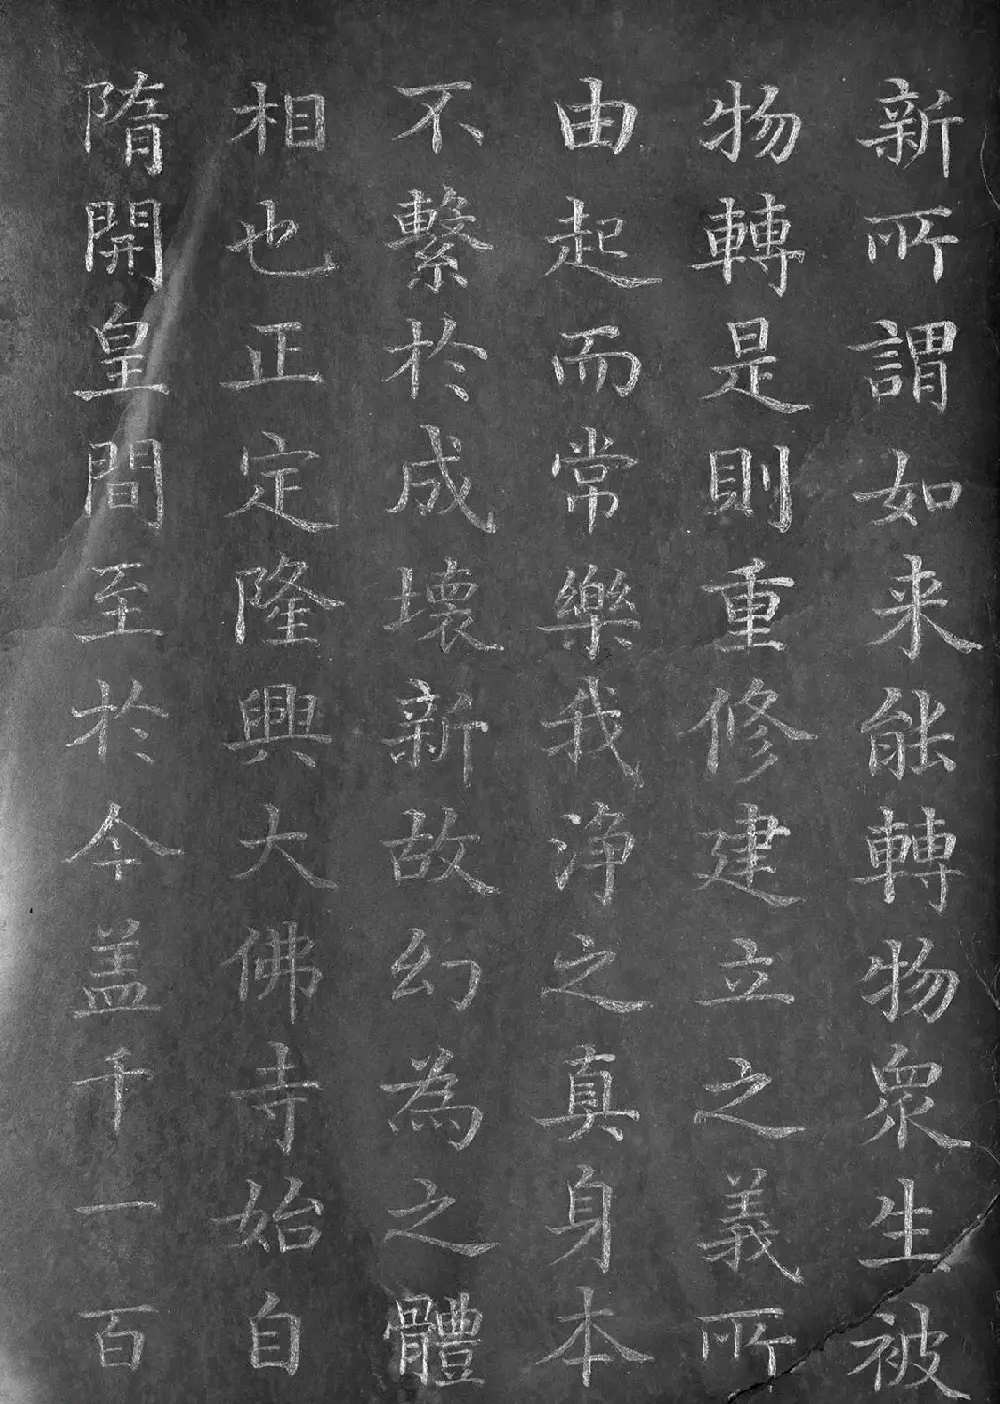 新所謂如来能轉物衆生被
物轉是則重修建立之義所
由起而常樂我淨之真身本
不繫於成壞新故幻為之體
相也正定隆興大佛寺始自
隋開皇間至於今盖千一百